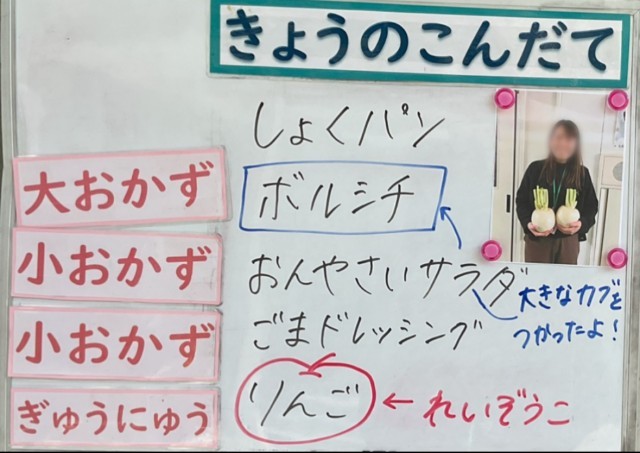 きょうのこんだて
しょくパン
大おかず ボルシチ
小おかず おんやさいサラダ
大きなカブを
つかったよ!
小おかず ごまドレッシング
ぎゅうにゅう りんご ← れいぞうこ